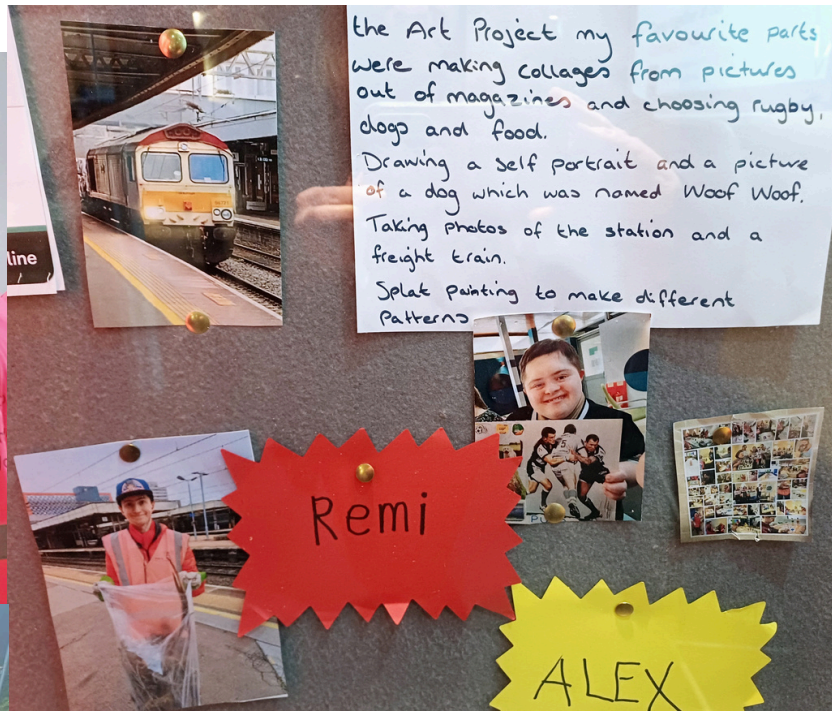 the Art Project my favourite parts
were making collages from pictures
out of magazines and choosing rugby,
dogs and food.
Drawing a self portrait and a picture
of a dog which was named Woof Woof.
Taking photos of the station and a
freight train.
Splat painting to make different
patterns
line
Remi
ALEX